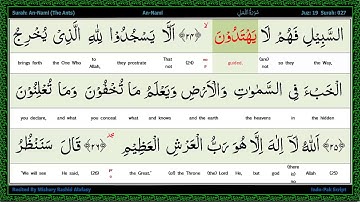 Surah: An-Naml (The Ants) An-Naml Juz: 19 Surah: 027
السَّبِيْلِ فَهُمْ لَا يَهْتَدُوْنَ ﴿٢٤﴾ اَلَّا يَسْجُدُوْا لِلّٰهِ الَّذِىْ يُخْرِجُ
brings forth the One Who to Allah, they prostrate That not (24) guided, (are) not so they the Way,
الْخَبْءَ فِى السَّمٰوٰتِ وَالْاَرْضِ وَيَعْلَمُ مَا تُخْفُوْنَ وَمَا تُعْلِنُوْنَ
you declare, and what you conceal what and knows and the earth the heavens in the hidden
﴿٢٥﴾ اَللّٰهُ لَاۤ اِلٰهَ اِلَّا هُوَ رَبُّ الْعَرْشِ الْعَظِيْمِ ﴿٢٦﴾ قَالَ سَنَنْظُرُ
"We will see He said, (26) the Great." (of) the Throne (the) Lord He, but god (there is) no Allah (25)
Recited By Mishary Rashid Alafasy Indo (Pak Script)